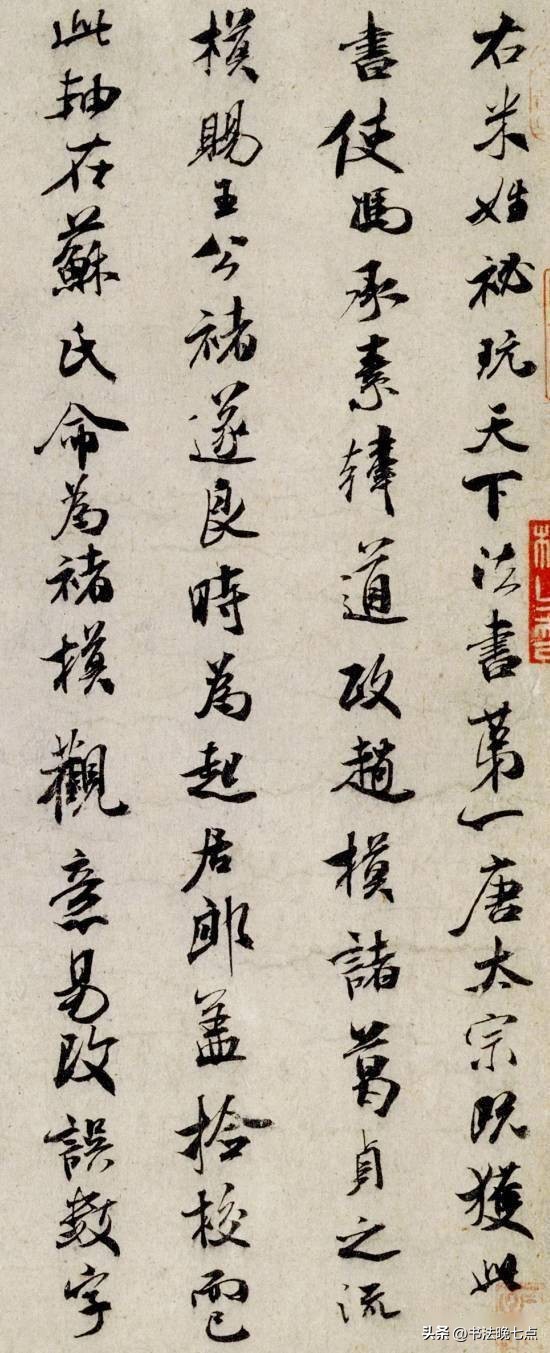 右米姓祕玩天下法書第一唐太宗既獲此
書使馮承素韓道政趙模諸葛貞之流
模賜王公褚遂良時為起居郎蓋檢校而已
此軸在蘇氏命為褚模觀意易改誤數字
头条 @书法晚七点